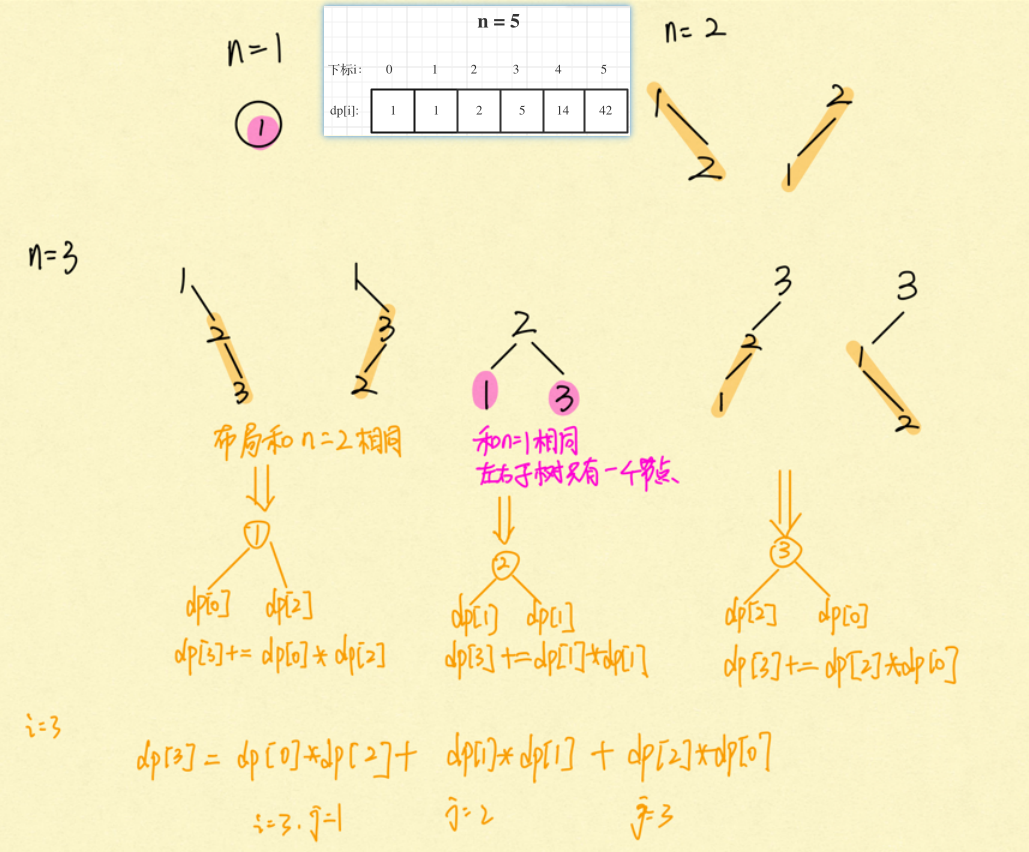 n=1
1
n = 5
下标i: 0 1 2 3 4 5
dp[i]: 1 1 2 5 14 42
n=2
1
2
2
1
n=3
1
2
3
1
3
2
2
1 3
3
2
1
3
1
2
布局和n=2相同
和n=1相同
左右子树只有一个节点、
1
dp[0] dp[2]
dp[3]+= dp[0]*dp[2]
2
dp[1] dp[1]
dp[3]+=dp[1]*dp[1]
3
dp[2] dp[0]
dp[3]+=dp[2]*dp[0]
i=3
dp[3] = dp[0]*dp[2]+ dp[1]*dp[1] + dp[2]*dp[0]
i=3. j=1 j=2 j=3